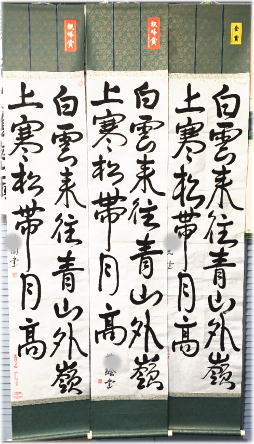 金賞
白雲来往青山外嶺
上寒松帯月高
白雲来往青山外嶺
上寒松帯月高
白雲来往青山外嶺
上寒松帯月高